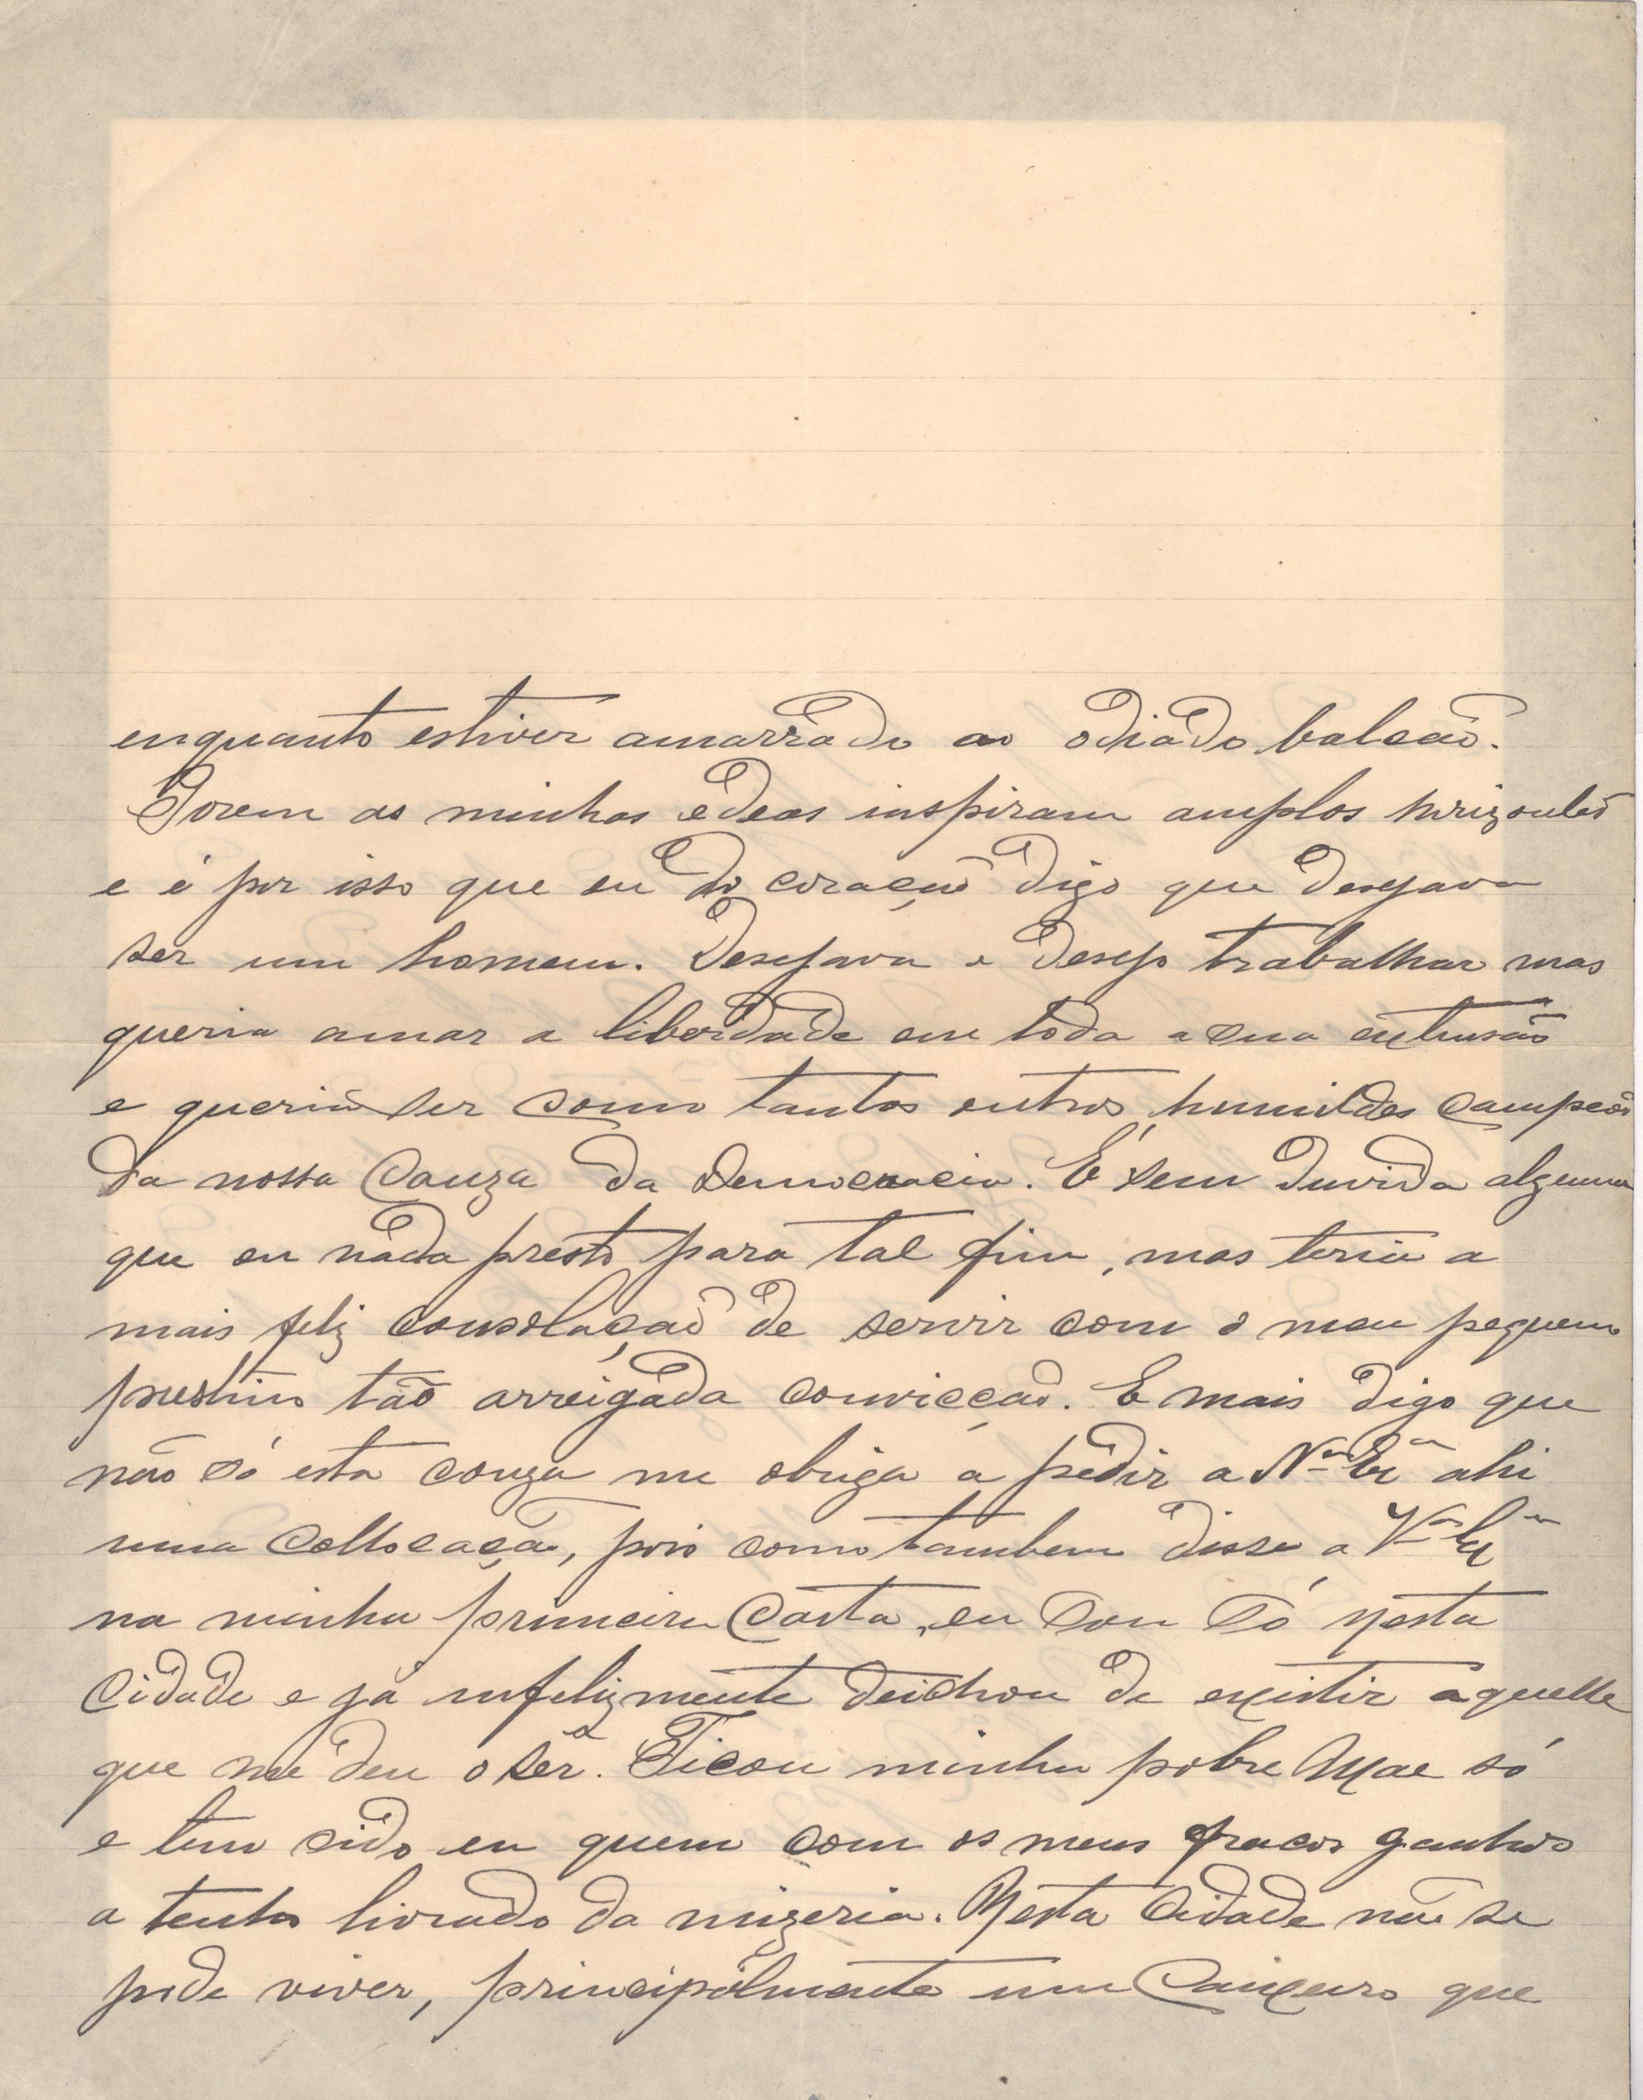 enquanto estiver amarrado ao odiádo balcão.
Porem as minhas edeas inspiram amplos horizontes
e é por isso que eu do coração digo que desejava
ser um homem. Desejava e desejo trabalhar mas
queria amar a liberdade em toda a sua extensão
e queria ser como tantos outros, humildes campeões
da nossa Cauza da Democracia. É sem duvida alguma
que eu náda presto para tal fim, mas teria a
mais feliz consolação de servir com o meu pequeno
prestimo tão arreigáda convicção. E mais digo que
não só esta couza me obriga a pedir a V.ª Exª ahi
uma collocação, pois como tambem disse a V.ª Exª
na minha primeira Carta, eu sou só nesta
Cidade e já infelizmente deichou de existir aquelle
que me deu o sêr. Ficou minha pobre Mãe só
e tem sido eu quem com os meus fracos ganhos
a tenho livrado da mizeria. Nesta Cidade não se
pode viver, principálmente um Caixeiro que